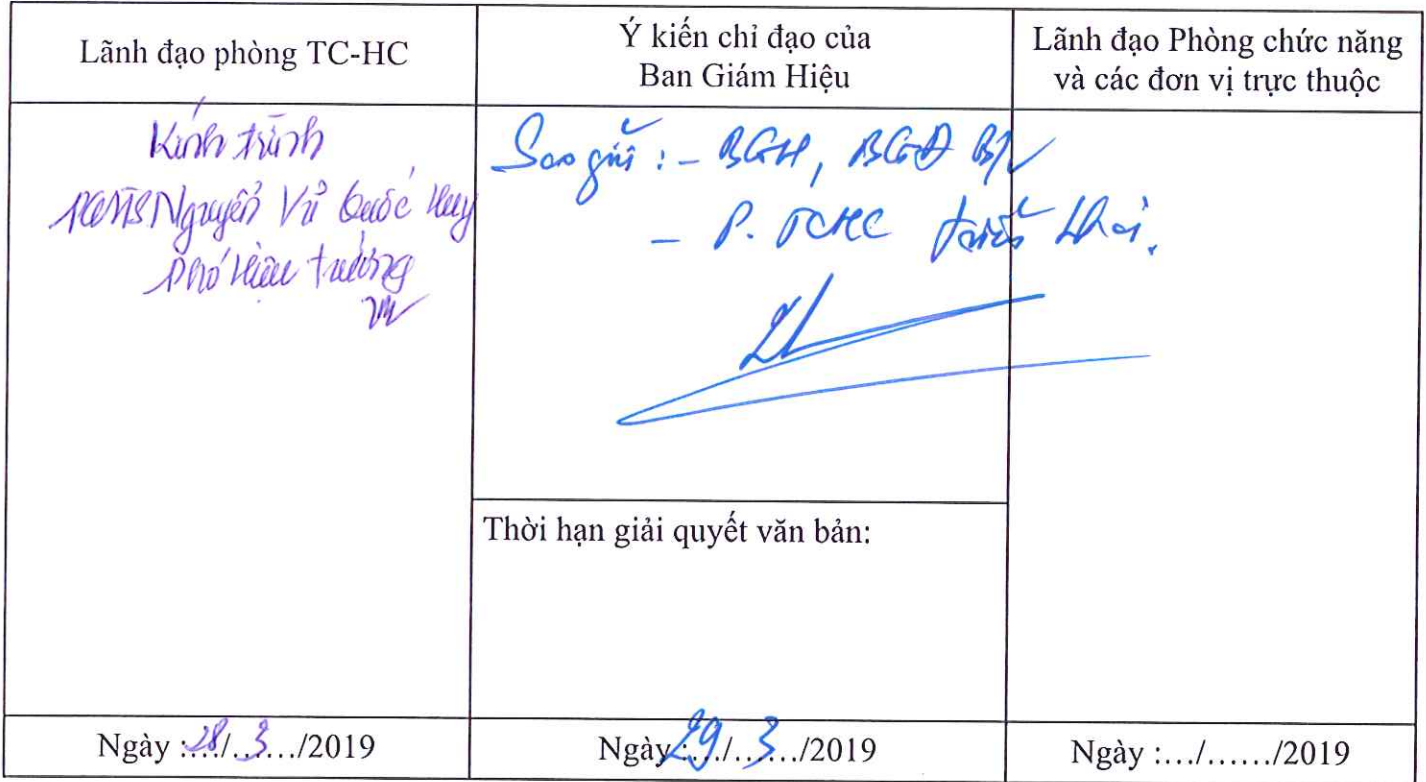 Lãnh đạo phòng TC-HC
Ý kiến chỉ đạo của
Ban Giám Hiệu
Lãnh đạo Phòng chức năng
và các đơn vị trực thuộc
Kính trình
PGS.TS Nguyễn Vũ Quốc Huy
Phó Hiệu trưởng
Sao gửi : - BGH, BGĐ BV
- P. TCHC triển khai.
Thời hạn giải quyết văn bản:
Ngày :28/.3.../2019
Ngày :29/.3.../2019
Ngày :.../....../2019